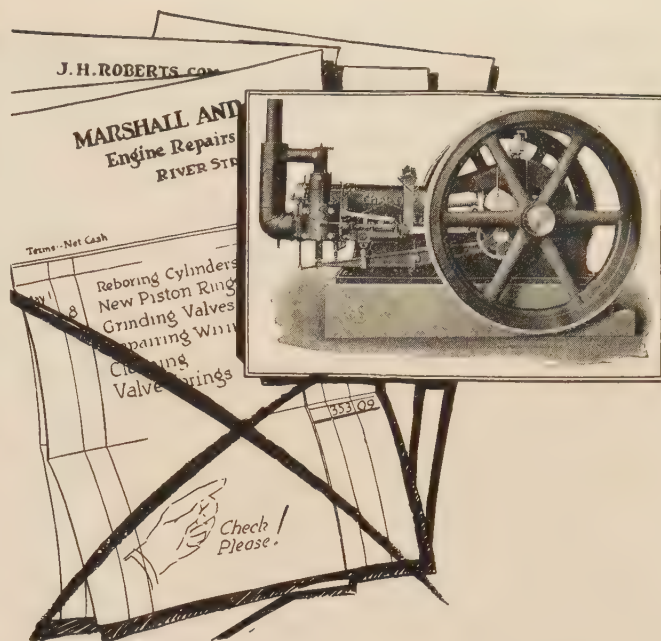 J.H.ROBERTS
MARSHALL AND
Engine Repairs
RIVER
Terms--Net Cash
8
Reboring Cylinders
New Piston Ring
Grinding Valves
Valve Springs
353 09
Check
Please!